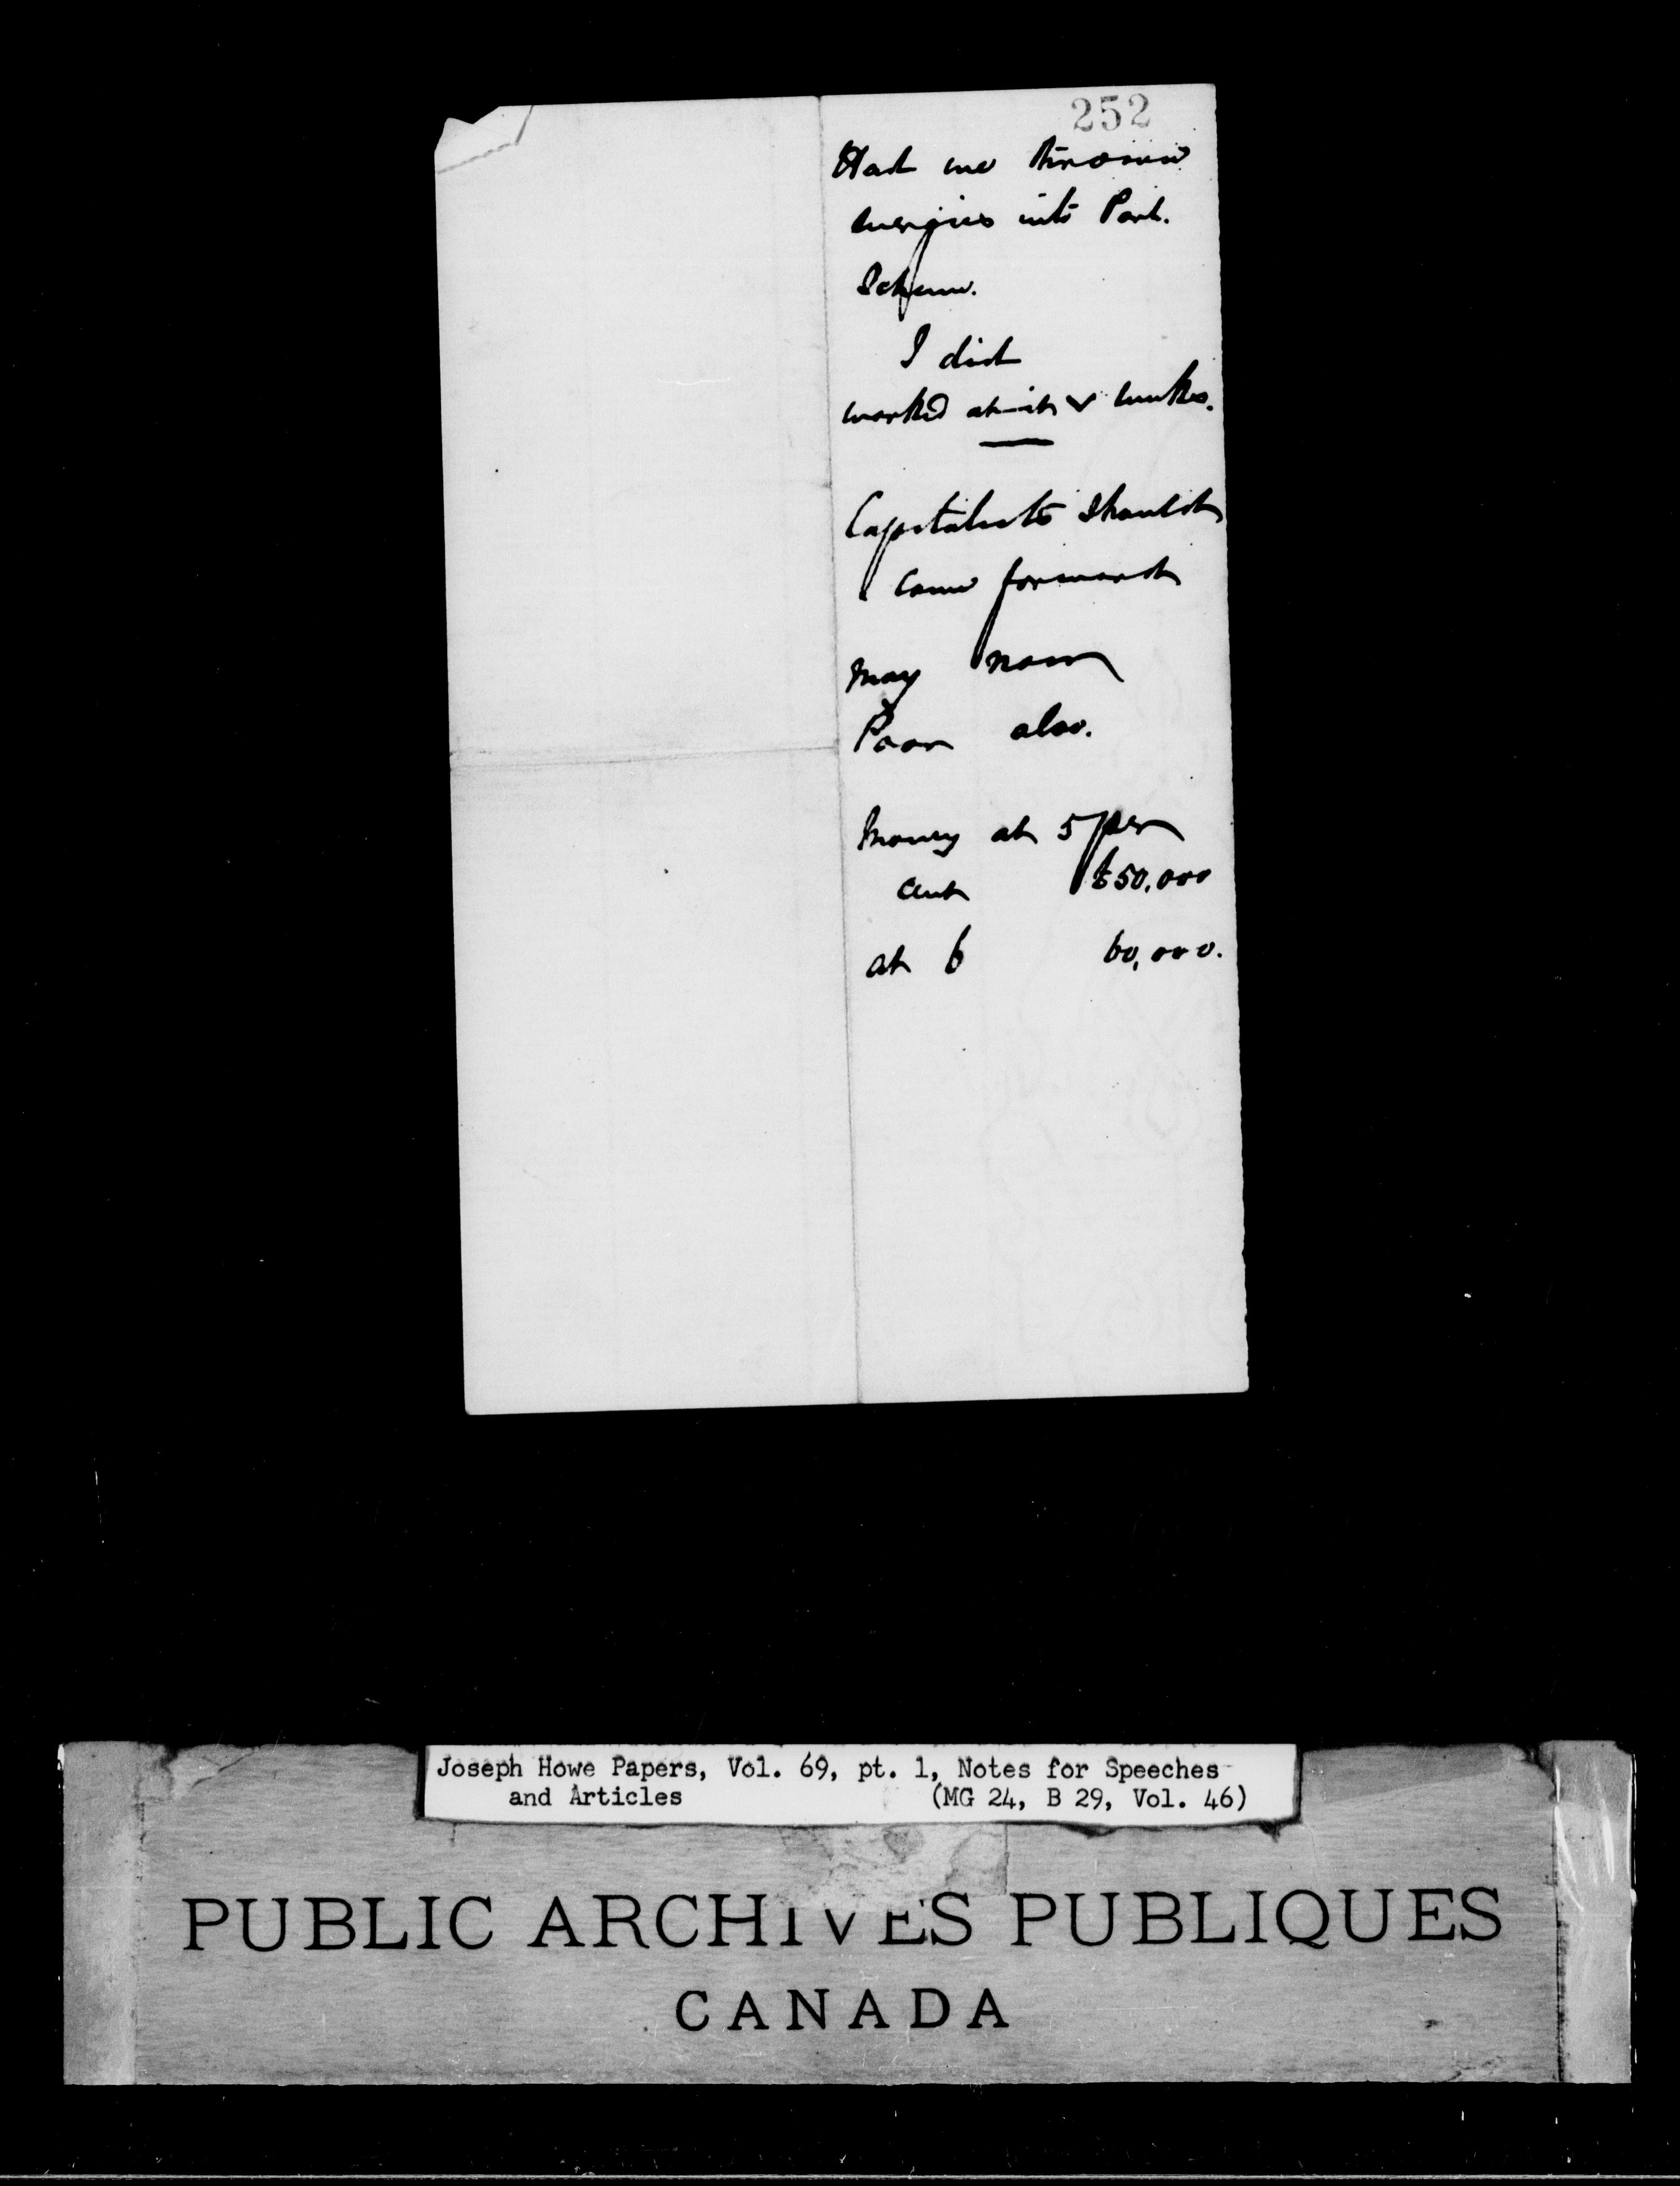 252
Had we thrown
energies into Port.
Scheme.
I did
worked at it 5 weeks.
Capitalists should
come forward
may now
Poor also.
Money at 5 per
cent £50,000
at 6 60,000.
Joseph Howe Papers, Vol. 69, pt. 1, Notes for Speeches
and Articles (MG 24, B 29, Vol. 46)
PUBLIC ARCHIVES PUBLIQUES
CANADA